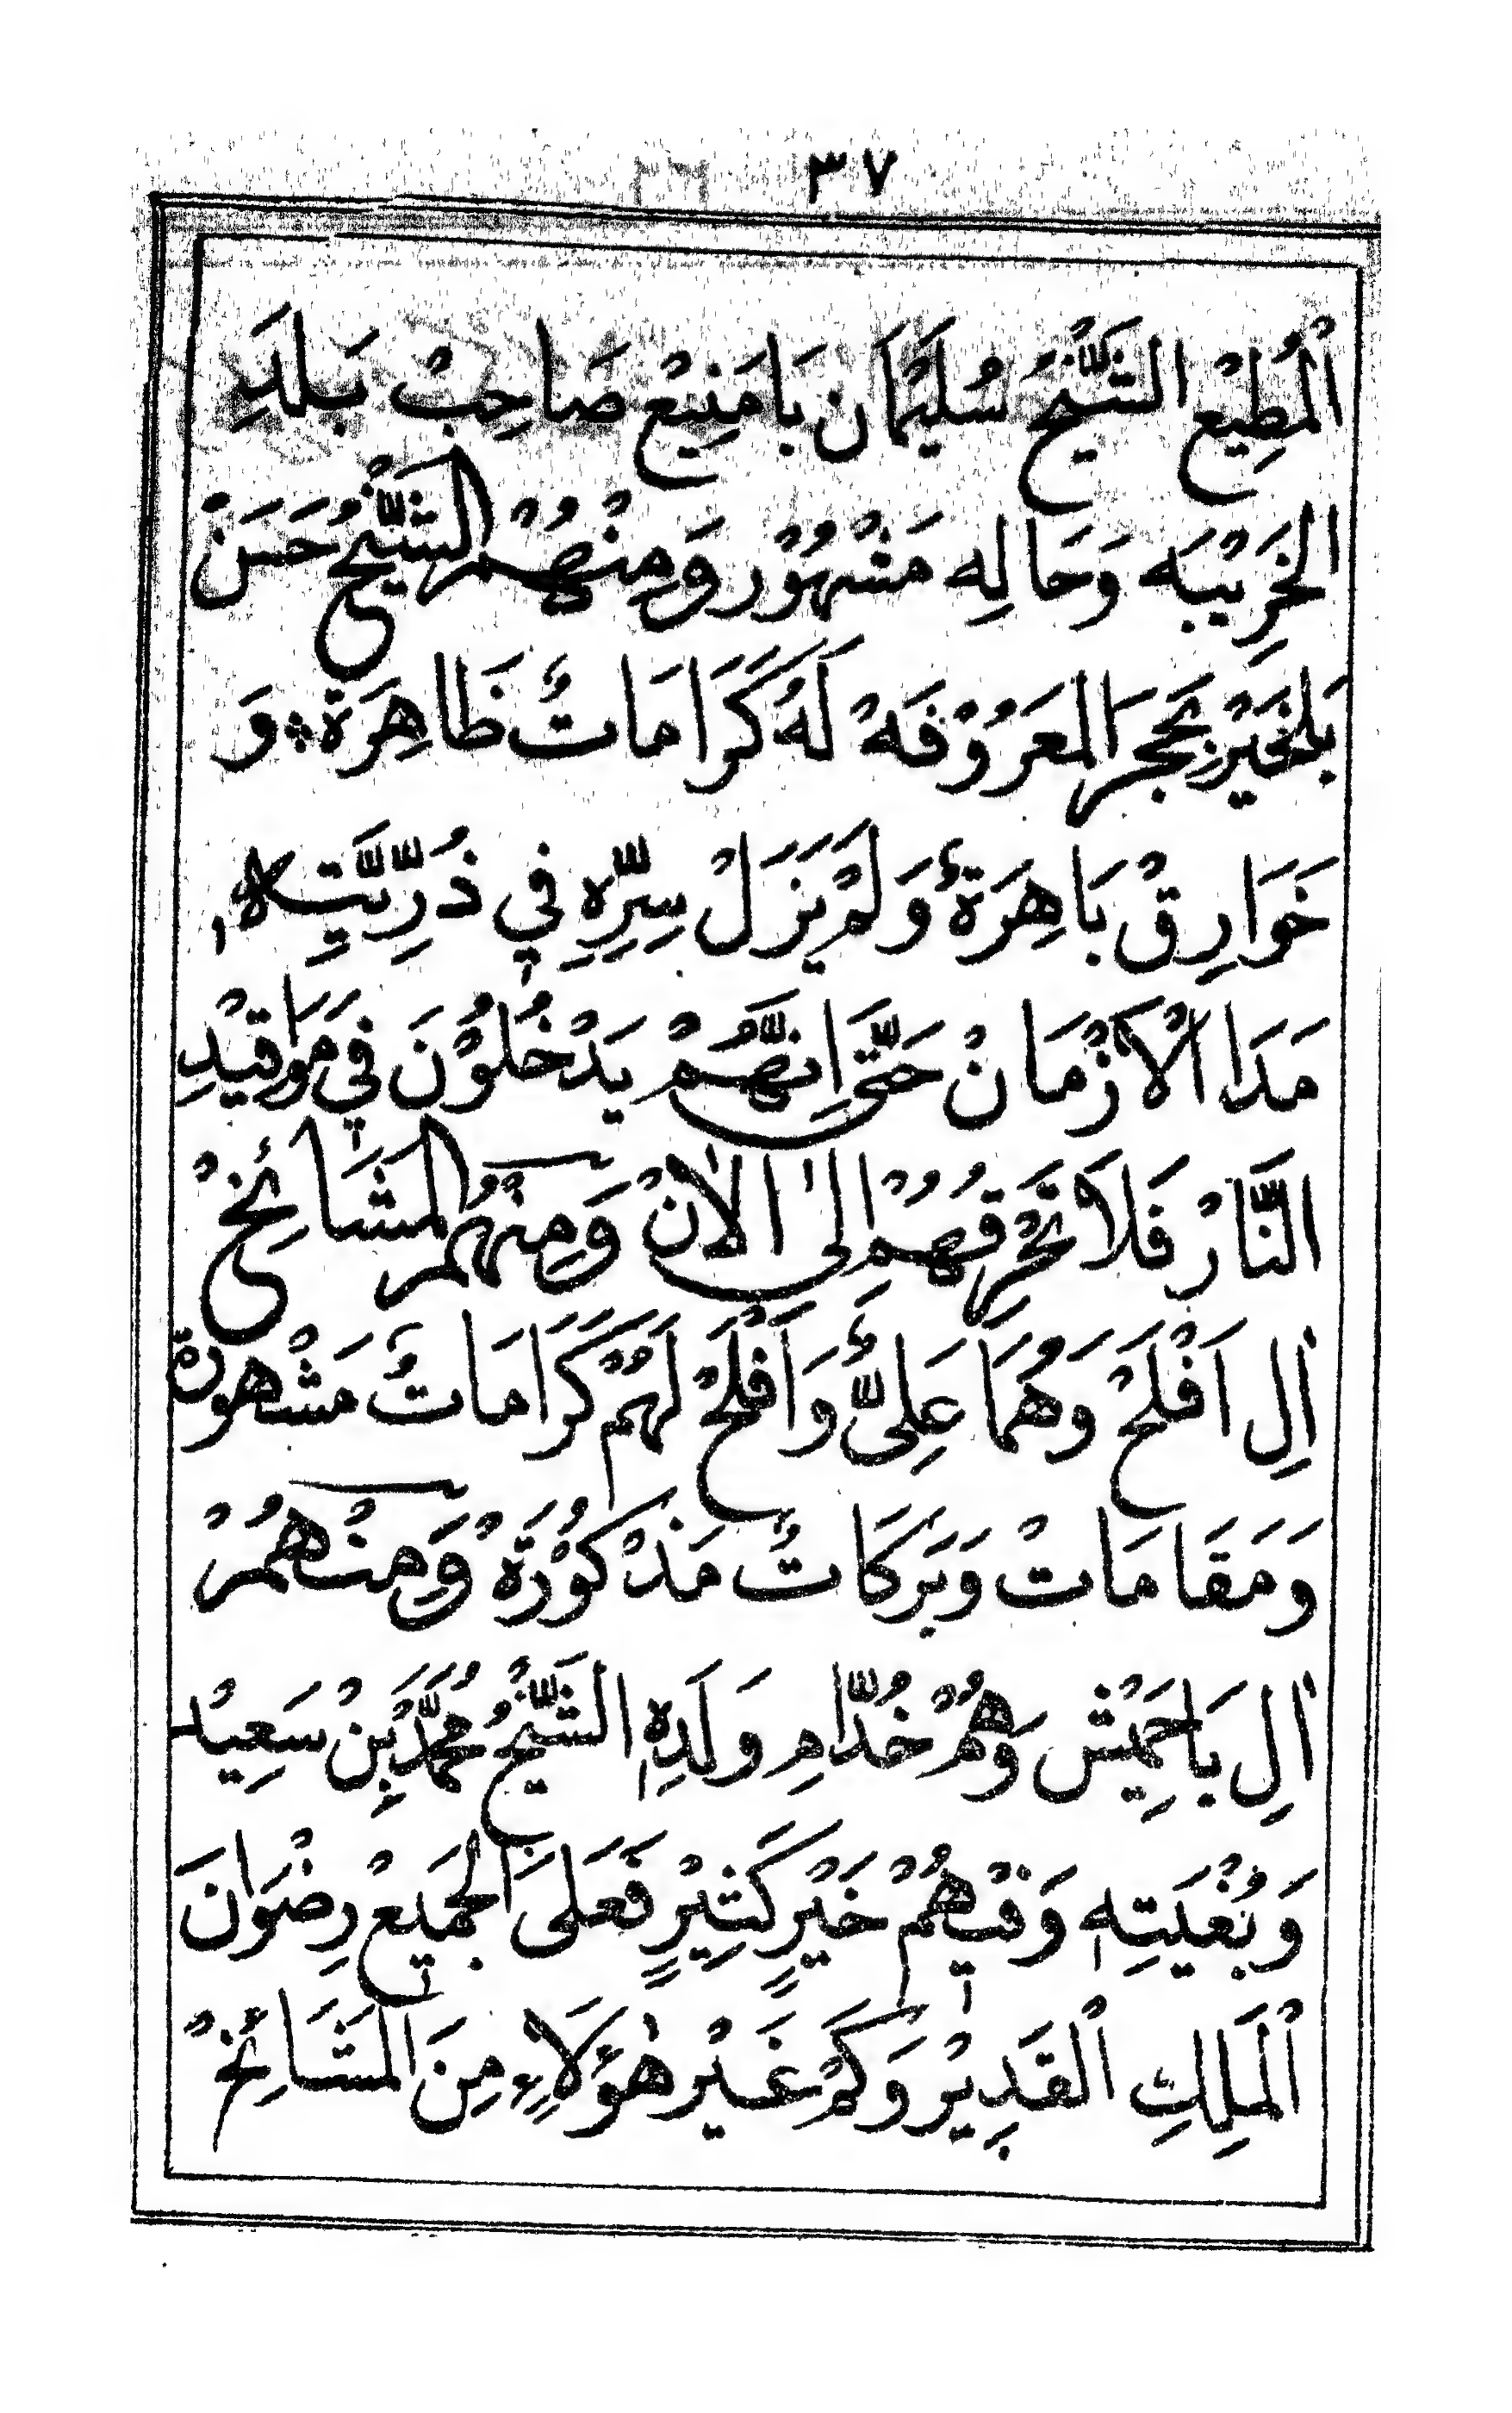 ٣٧
اَلْمُطِيْعْ الشَّيْخُ سُلَيْمَان بَامَنِيْعْ صَاحِبْ بَلَدِ
الخَرِيْبَه وَحَالِه مَشْهُوْر وَمِنْهُمْ الشَّيْخُ حَسَنْ
بَلْخَيْرْ بَحَجَرَ المَعَرُوْفَهْ لَهُ كَرَامَاتٌ ظَاهِرَةْ وَ
خَوَارِقْ بَاهِرَةٌ وَلَمْ يَزَلْ سِرِّهِ فِي ذُرِّيَّتِهِ
مَدَا الْاَزْمَانْ حَتَّى اِنَّهُمْ يَدْخُلُوْنَ فِي مَوَاقِيْدِ
النَّارْ فَلَا تَحْرِقُهُمْ اِلىٰ الاٰنْ وَمِنْهُمْ المَشَائِخْ
اٰلِ اَفْلَحْ وَهُمَا عَلِيٌّ وَاَفْلَحْ لَهُمْ كَرَامَاتٌ مَشْهُورَة
وَمَقَامَاتْ وَبَرَكَاتٌ مَذْكُوْرَةْ وَمِنْهُمْ
اٰلِ بَاحَمِيْش وَهُمْ خُدَّامِ وَلَدِهِ الشَّيْخُ مُحَمَّدَ بِنْ سَعِيْد
وَبُغْيَتِهِ وَفِيْهُمْ خَيْرٍ كَثِيْرٍ فَعَلَى الجَمِيْعْ رِضْوَانَ
اَلْمَلِكِ اَلْقَدِيْرْ وَكَمْ غَيْر هٰؤلَاءِ مِنَ المَشَائِخْ